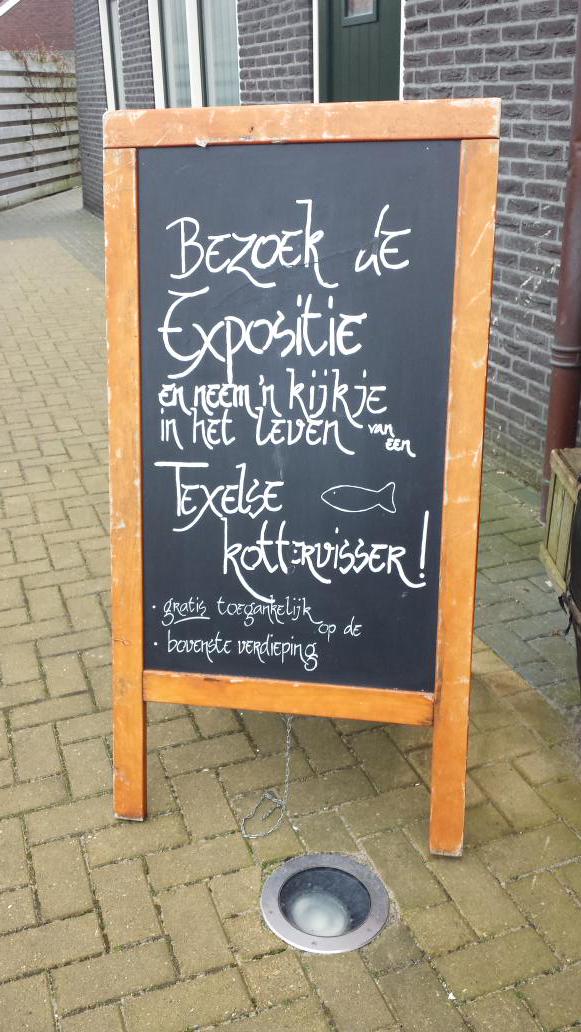 Bezoek de
Expositie
en neem 'n kijkje
in het leven van
een
Texelse
kottervisser!
• gratis toegankelijk
op de
• bovenste verdieping